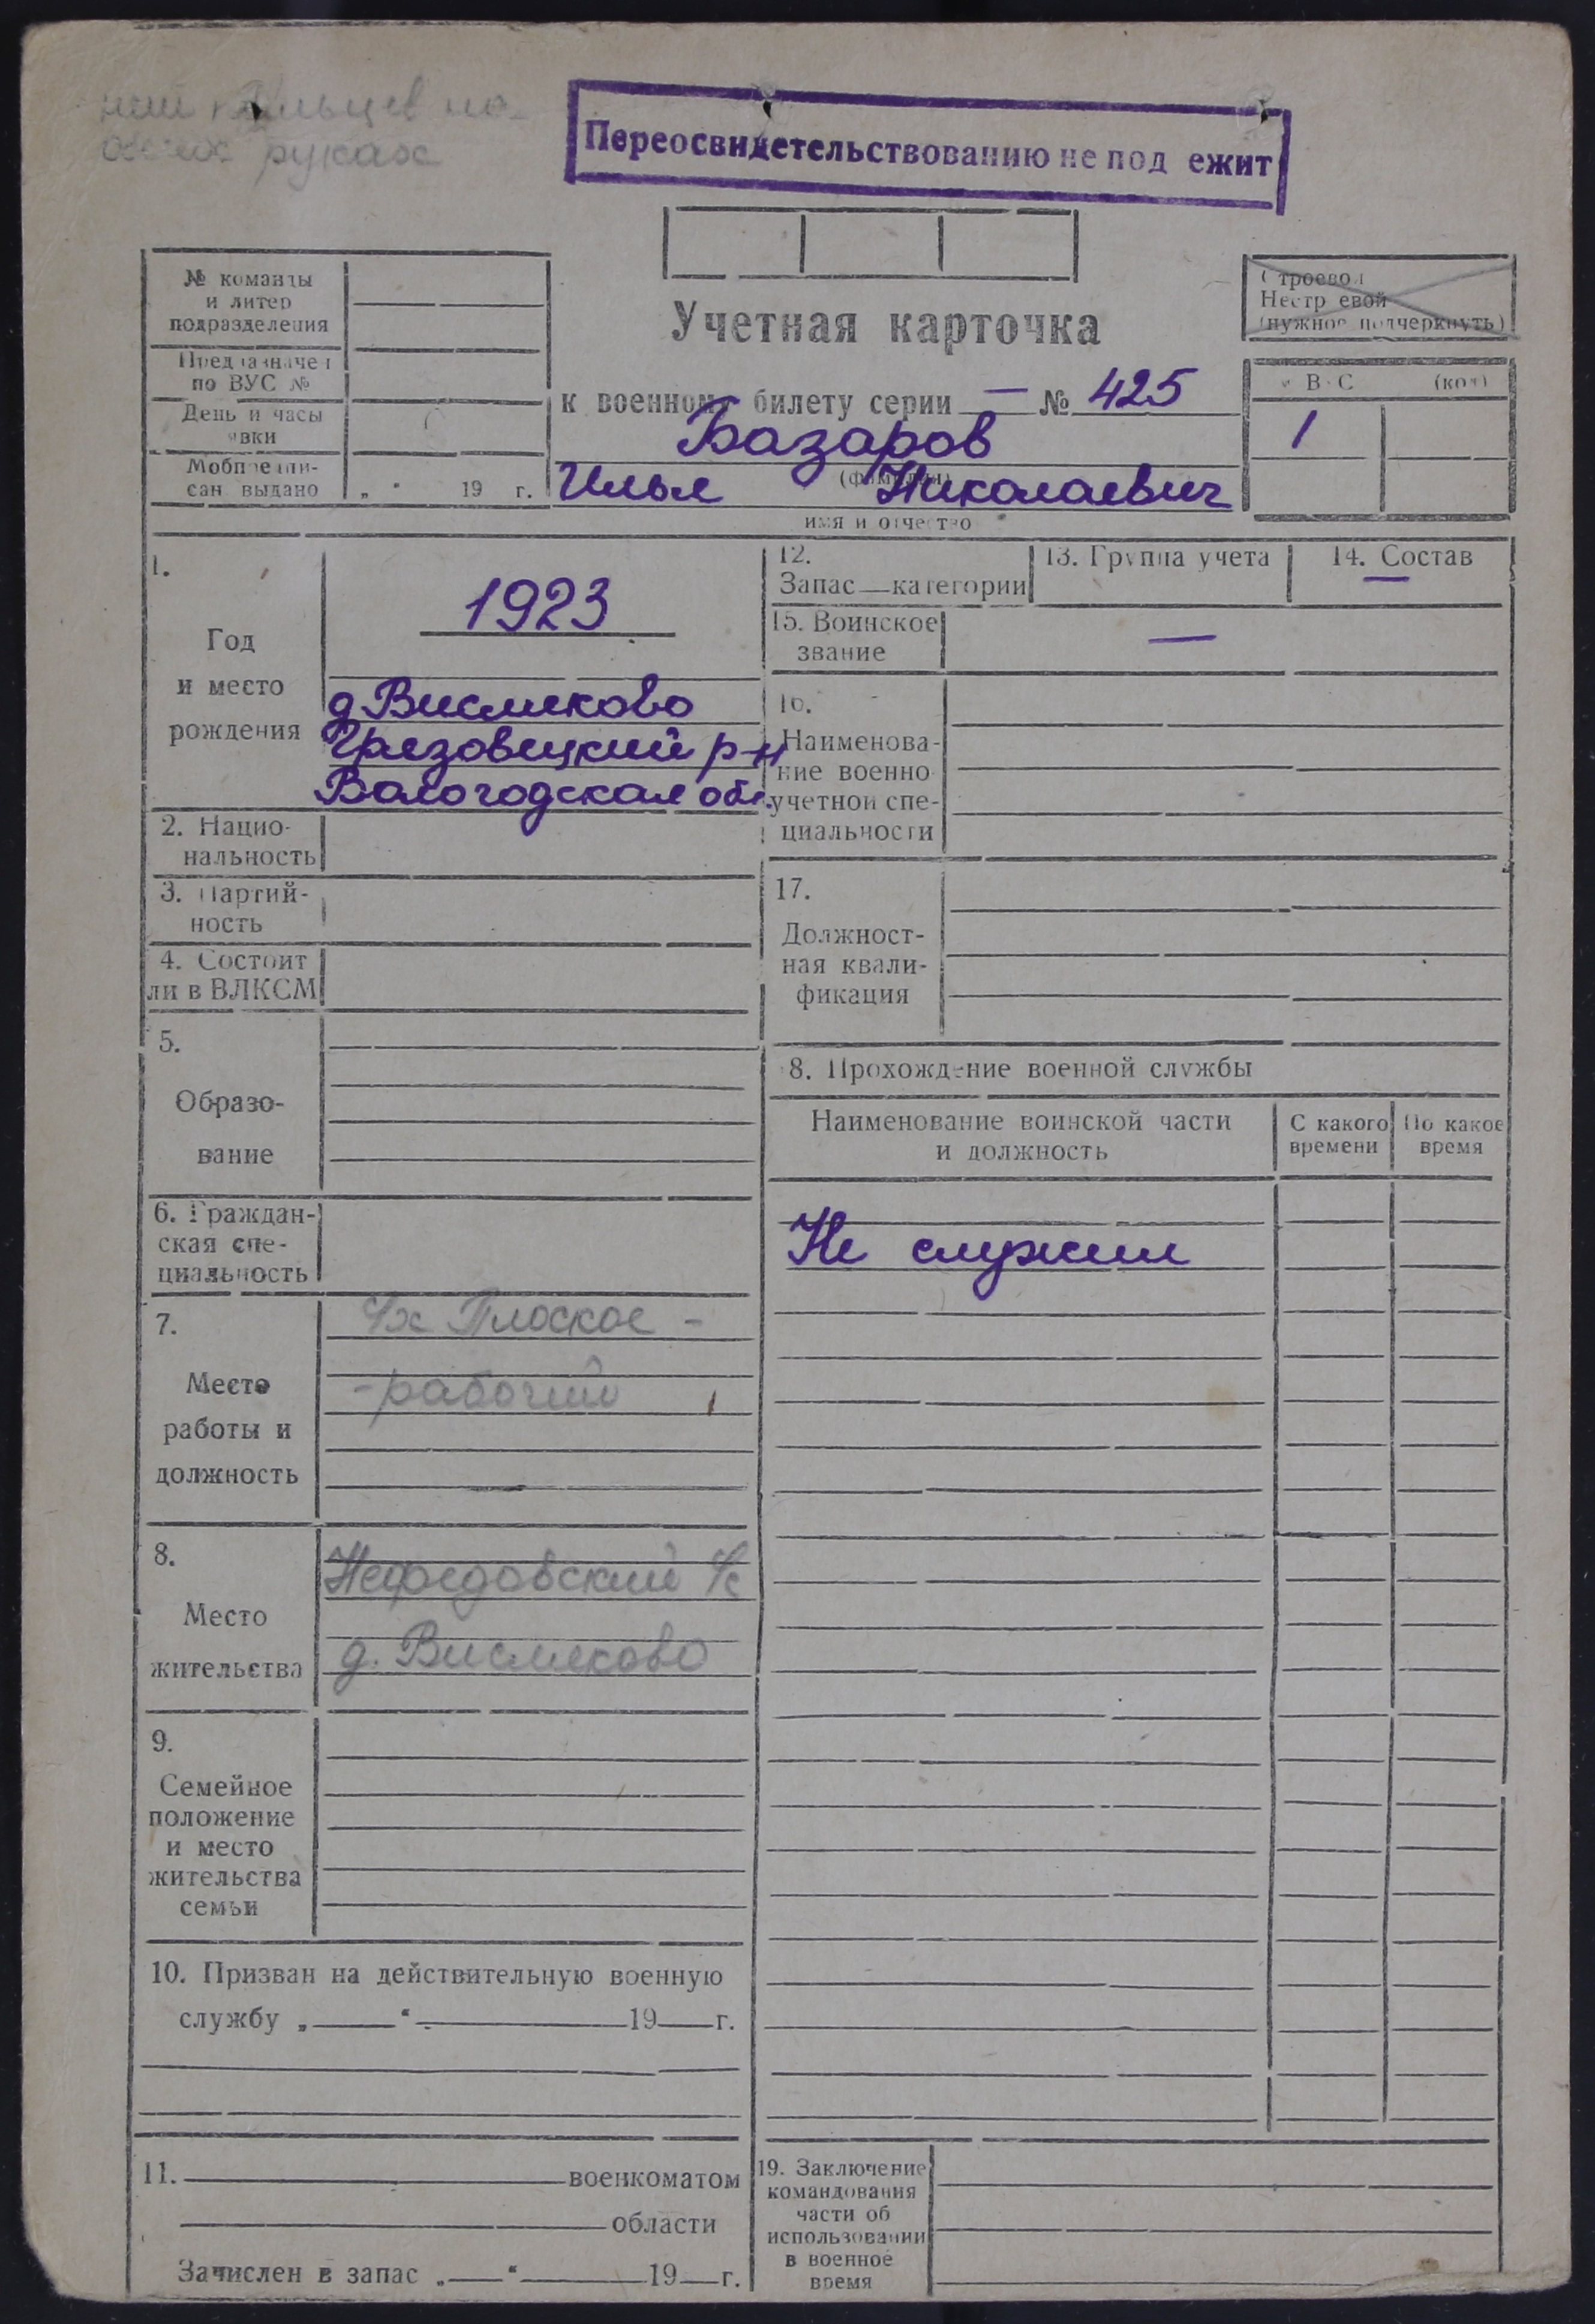 пальцев на
обеих руках
Переосвидетельствованию не под ежит
№ команды
и литер
подразделения
Предназначен
по ВУС №
День и часы
явки
Мобпредпи-
сан выдано „ “ 19 г.
Учетная карточка
к военному билету серии — № 425
Базаров
(фамилия)
Илья Николаевич
имя и отчество
Строевой
Нестроевой
(нужное подчеркнуть)
ВУС (код)
1
1.
Год
и место
рождения
1923
д. Висмяково
Грязовецкий р-н
Вологодская обл.
2. Нацио-
нальность
3. Партий-
ность
4. Состоит
ли в ВЛКСМ
5.
Образо-
вание
6. Граждан-
ская спе-
циальность
7.
Место
работы и
должность
Плоское -
- рабочий
8.
Место
жительства
Нефедовский с/с
д. Висмяково
9.
Семейное
положение
и место
жительства
семьи
10. Призван на действительную военную
службу „ “ 19 г.
11. военкоматом
области
Зачислен в запас „ “ 19 г.
12.
Запас — категории
13. Группа учета
14. Состав
—
15. Воинское
звание
—
16.
Наименова-
ние военно
учетной спе-
циальности
17.
Должност-
ная квали-
фикация
8. Прохождение военной службы
Наименование воинской части
и должность
С какого
времени
По какое
время
Не служил
19. Заключение
командования
части об
использовании
в военное
время